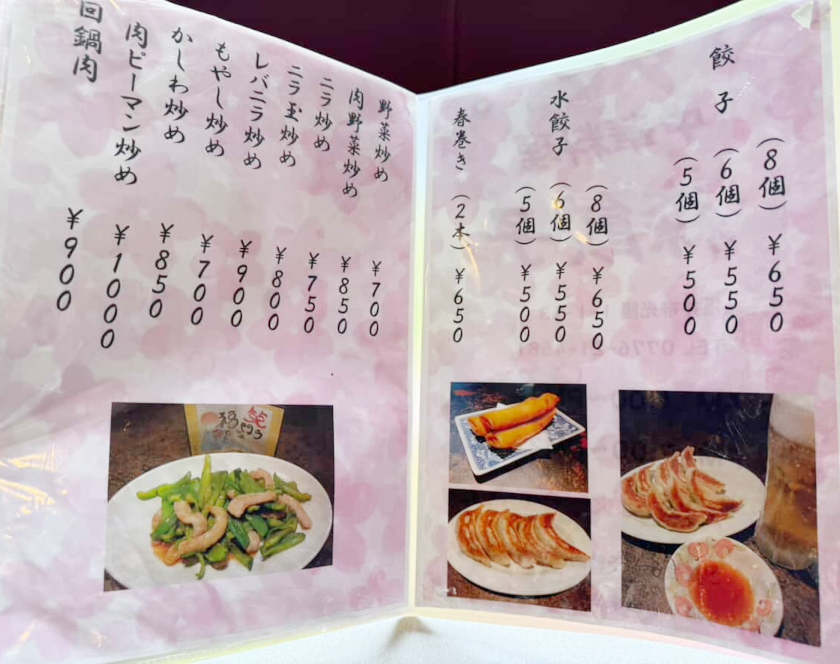 餃子
（8個）¥650
（6個）¥550
（5個）¥500
水餃子
（8個）¥650
（6個）¥550
（5個）¥500
春巻き（2本）¥650
野菜炒め ¥700
肉野菜炒め ¥850
ニラ炒め ¥750
ニラ玉炒め ¥800
レバニラ炒め ¥900
もやし炒め ¥700
かしわ炒め ¥850
肉ピーマン炒め ¥1000
回鍋肉 ¥900